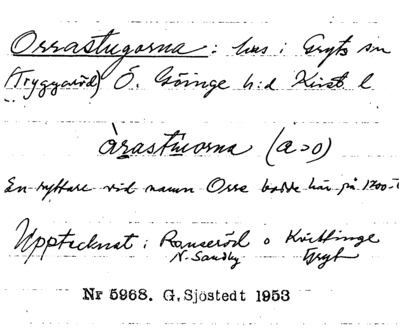 Orrastugorna: hus i Gryts sn
(Tryggaröd) Ö. Göinge h:d Krist l
àrastùorna (a>o)
En ryttare vid namn Orre bodde här på 1700-t
Upptecknat i Ranseröd o Kvittinge
N. Sandby Gryt
Nr 5968. G. Sjöstedt 1953